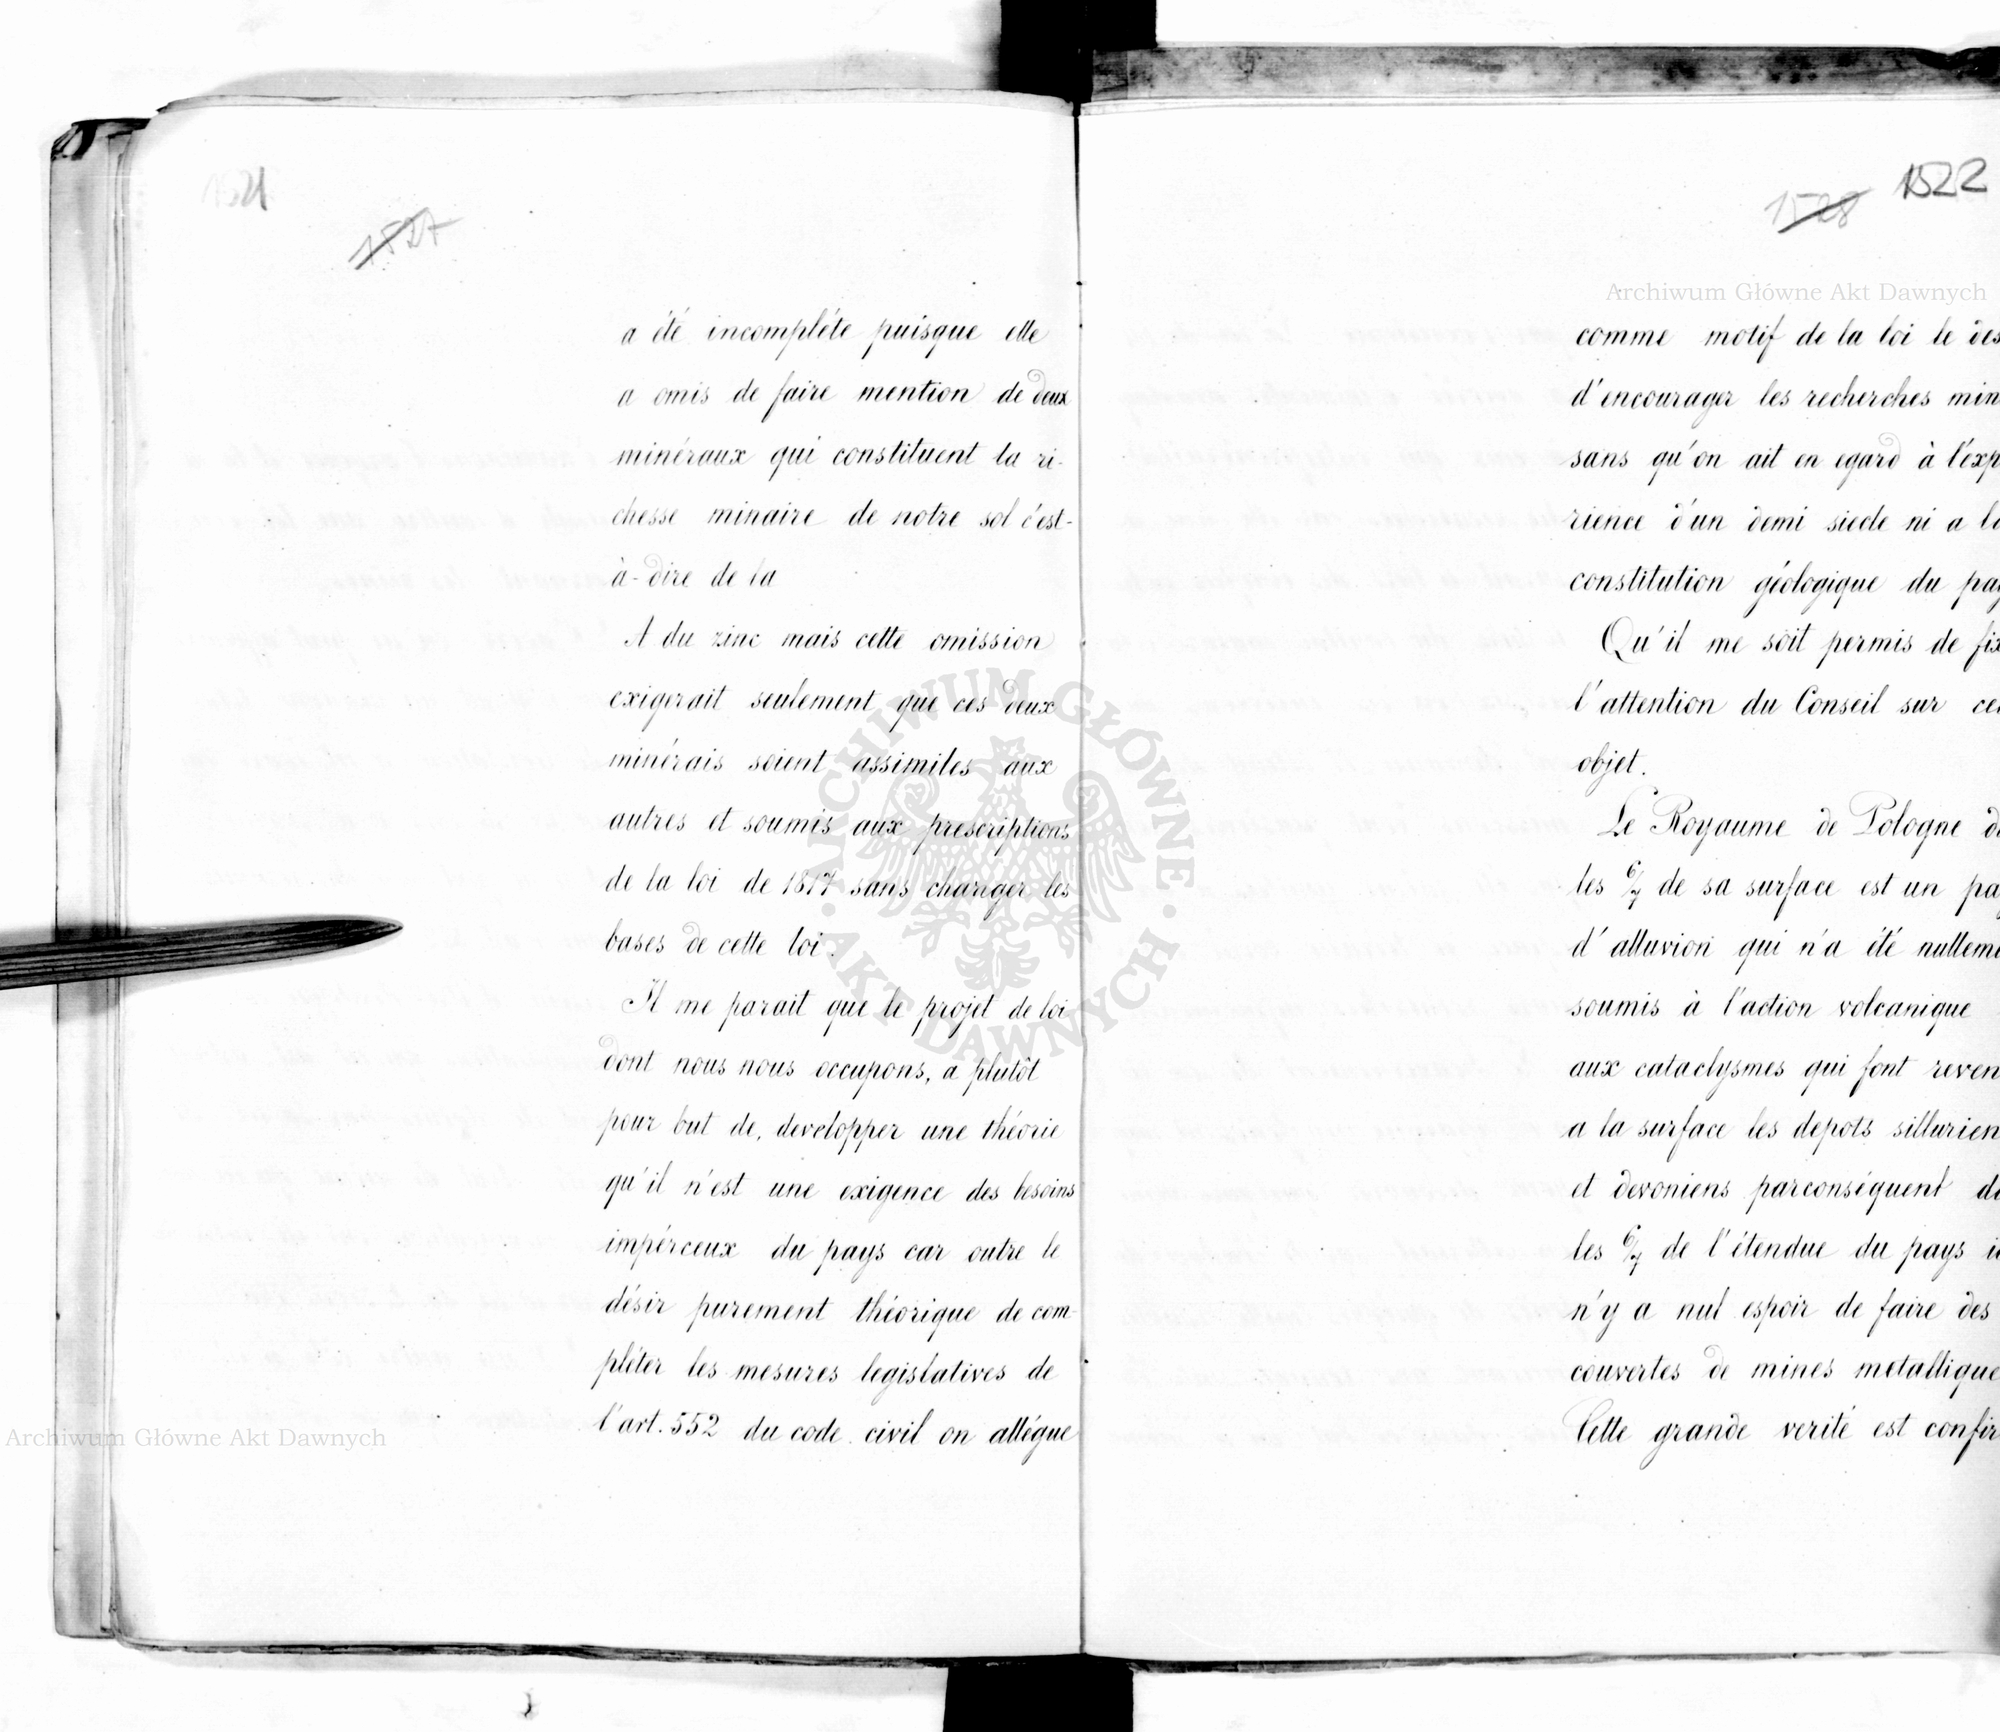 1521
1527
a été incompléte puisque elle
a omis de faire mention de deux
minéraux qui constituent la ri-
chesse minaire de notre sol c'est-
à-dire de la
A du zinc mais cette omission
exigerait seulement que ces deux
minérais soient assimiles aux
autres et soumis aux prescriptions
de la loi de 1817 sans changer les
bases de cette loi.
Il me parait que le projet de loi
dont nous nous occupons, a plutôt
pour but de, developper une théorie
qu'il n'est une exigence des besoins
impérceux du pays car outre le
désir purement théorique de com-
pléter les mesures legislatives de
l'art. 552 du code civil on allégue
1522
1528
Archiwum Główne Akt Dawnych
comme motif de la loi le des
d'encourager les recherches min
sans qu'on ait en egard à l'exp
rience d'un demi siecle ni a la
constitution géologique du pay
Qu'il me soit permis de fix
l'attention du Conseil sur cet
objet.
Le Royaume de Pologne da
les 6/7 de sa surface est un pay
d'alluvion qui n'a été nulleme
soumis à l'action volcanique
aux cataclysmes qui font reven
a la surface les depots sillurien
et devoniens parconséquent da
les 6/7 de l'étendue du pays i
n'y a nul espoir de faire des
couvertes de mines metallique
Cette grande verité est confir
ARCHIWUM GŁÓWNE AKT DAWNYCH
Archiwum Główne Akt Dawnych